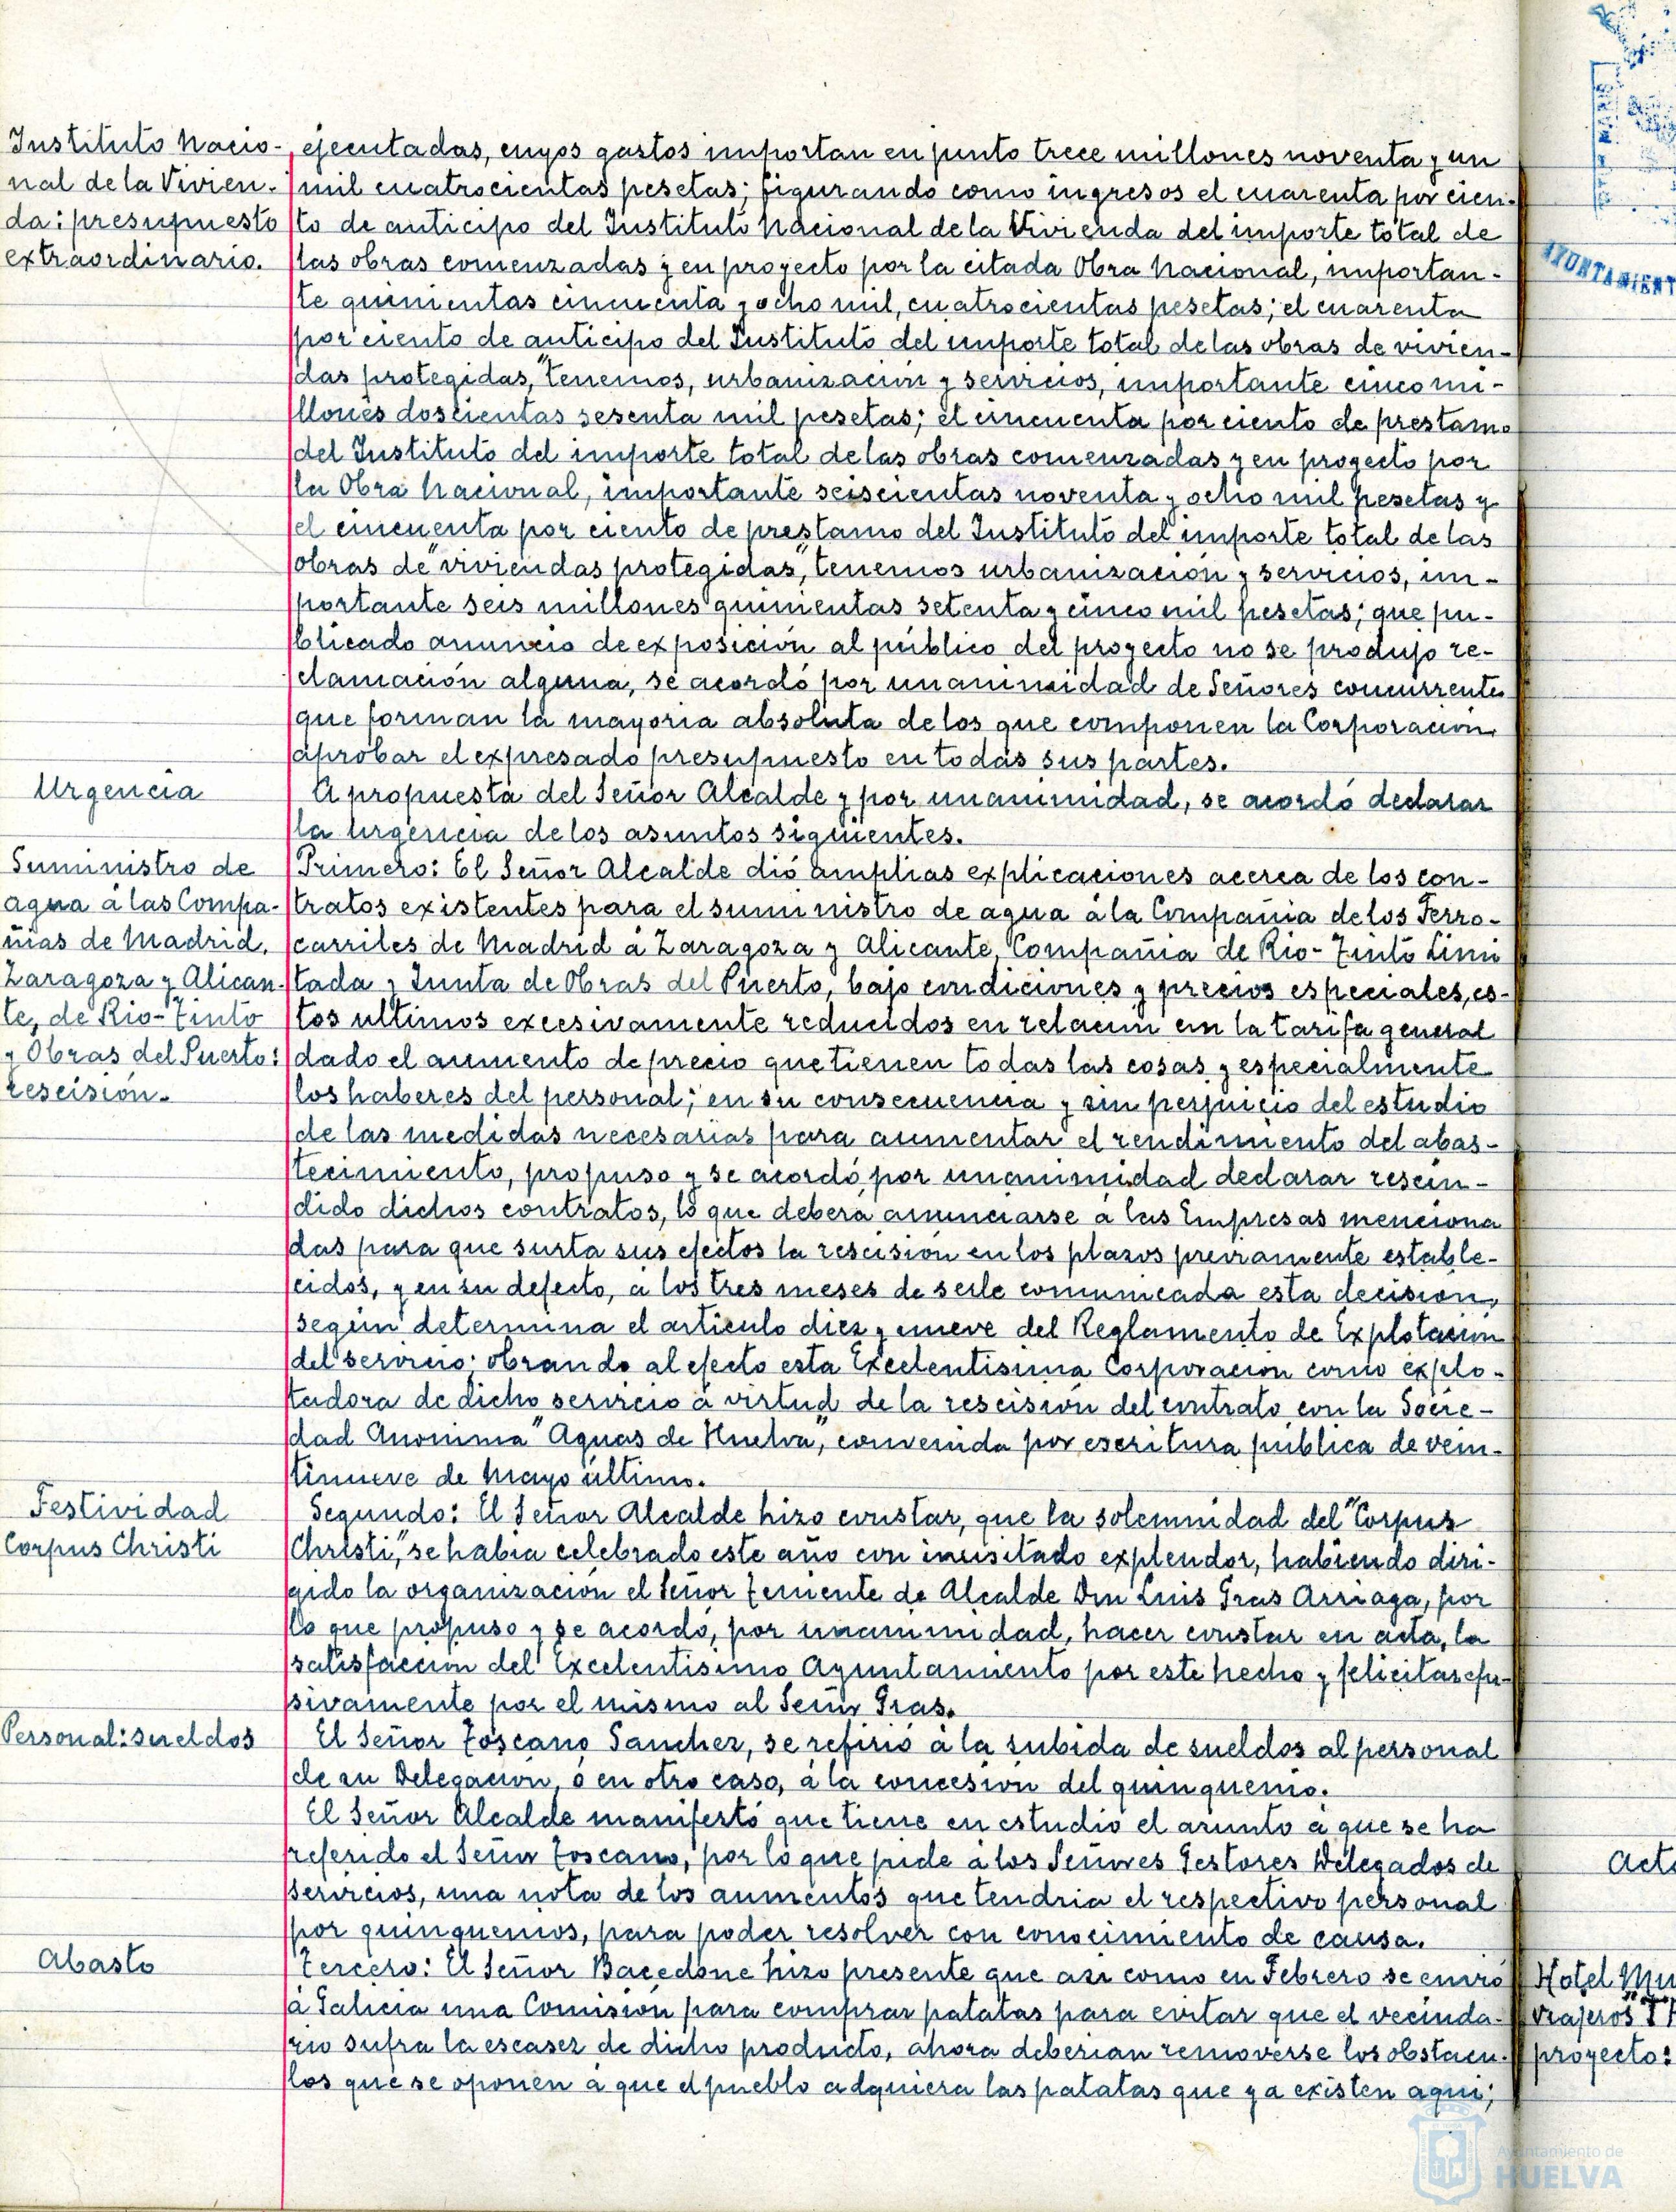 Instituto Nacio-
nal de la Vivien-
da: presupuesto
extraordinario.
ejecutadas, cuyos gastos importan en junto trece millones noventa y un
mil cuatrocientas pesetas; figurando como ingresos el cuarenta por cien-
to de anticipo del Instituto Nacional de la Vivienda del importe total de
las obras comenzadas y en proyecto por la citada Obra Nacional, importan-
te quinientas cincuenta y ocho mil, cuatrocientas pesetas; el cuarenta
por ciento de anticipo del Instituto del importe total de las obras de vivien-
das protegidas," tenemos, urbanización y servicios, importante cinco mi-
llones doscientas sesenta mil pesetas; el cincuenta por ciento de prestamo
del Instituto del importe total de las obras comenzadas y en proyecto por
la Obra Nacional, importante seiscientas noventa y ocho mil pesetas y
el cincuenta por ciento de prestamo del Instituto del importe total de las
obras de "viviendas protegidas", tenemos urbanización y servicios, im-
portante seis millones quinientas setenta y cinco mil pesetas; que pu-
blicado anuncio de exposición al público del proyecto no se produjo re-
clamación alguna, se acordó por unanimidad de Señores concurrentes
que forman la mayoria absoluta de los que componen la Corporación,
aprobar el expresado presupuesto en todas sus partes.
Urgencia
A propuesta del Señor Alcalde y por unanimidad, se acordó declarar
la urgencia de los asuntos siguientes.
Suministro de
agua á las Compa-
ñias de Madrid,
Zaragoza y Alican-
te, de Rio-Tinto
y Obras del Puerto:
rescisión.
Primero: El Señor Alcalde dió amplias explicaciones acerca de los con-
tratos existentes para el suministro de agua á la Compañia de los Ferro-
carriles de Madrid á Zaragoza y Alicante, Compañia de Rio-Tinto Limi
tada y Junta de Obras del Puerto, bajo condiciones y precios especiales, es-
tos ultimos excesivamente reducidos en relación con la tarifa general
dado el aumento de precio que tienen todas las cosas y especialmente
los haberes del personal; en su consecuencia y sin perjuicio del estudio
de las medidas necesarias para aumentar el rendimiento del abas-
tecimiento, propuso y se acordó por unanimidad declarar rescin-
dido dichos contratos, lo que deberá anunciarse á las Empresas menciona
das para que surta sus efectos la rescisión en los plazos previamente estable-
cidos, y en su defecto, á los tres meses de serle comunicada esta decision,
según determina el articulo diez y nueve del Reglamento de Explotación
del servicio; obrando al efecto esta Excelentisima Corporación como explo-
tadora de dicho servicio á virtud de la rescisión del contrato con la Socie-
dad Anonima "Aguas de Huelva", convenida por escritura publica de vein-
tinueve de Mayo último.
Festividad
Corpus Christi
Segundo: El Señor Alcalde hizo constar, que la solemnidad del "Corpus
Christi", se habia celebrado este año con inusitado explendor, habiendo diri-
gido la organización el Señor Teniente de Alcalde Don Luis Gras Arriaga, por
lo que propuso y se acordó, por unanimidad, hacer constar en acta, la
satisfacción del Excelentisimo Ayuntamiento por este hecho y felicitar efu-
sivamente por el mismo al Señor Gras.
Personal: sueldos
El Señor Toscano Sanchez, se refirió á la subida de sueldos al personal
de su Delegación, ó en otro caso, á la concesión del quinquenio.
El Señor Alcalde manifestó que tiene en estudio el asunto á que se ha
referido el Señor Toscano, por lo que pide á los Señores Gestores Delegados de
servicios, una nota de los aumentos que tendria el respectivo personal
por quinquenios, para poder resolver con conocimiento de causa.
Abasto
Tercero: El Señor Bacedone hizo presente que asi como en Febrero se envió
á Galicia una Comisión para comprar patatas para evitar que el vecinda-
rio sufra la escasez de dicho producto, ahora deberian removerse los obstacu-
los que se oponen á que el pueblo adquiera las patatas que ya existen aqui;
AYUNTAMIENT
Acta
Hotel Mu
viajeros
proyecto:
Ayuntamiento de
HUELVA